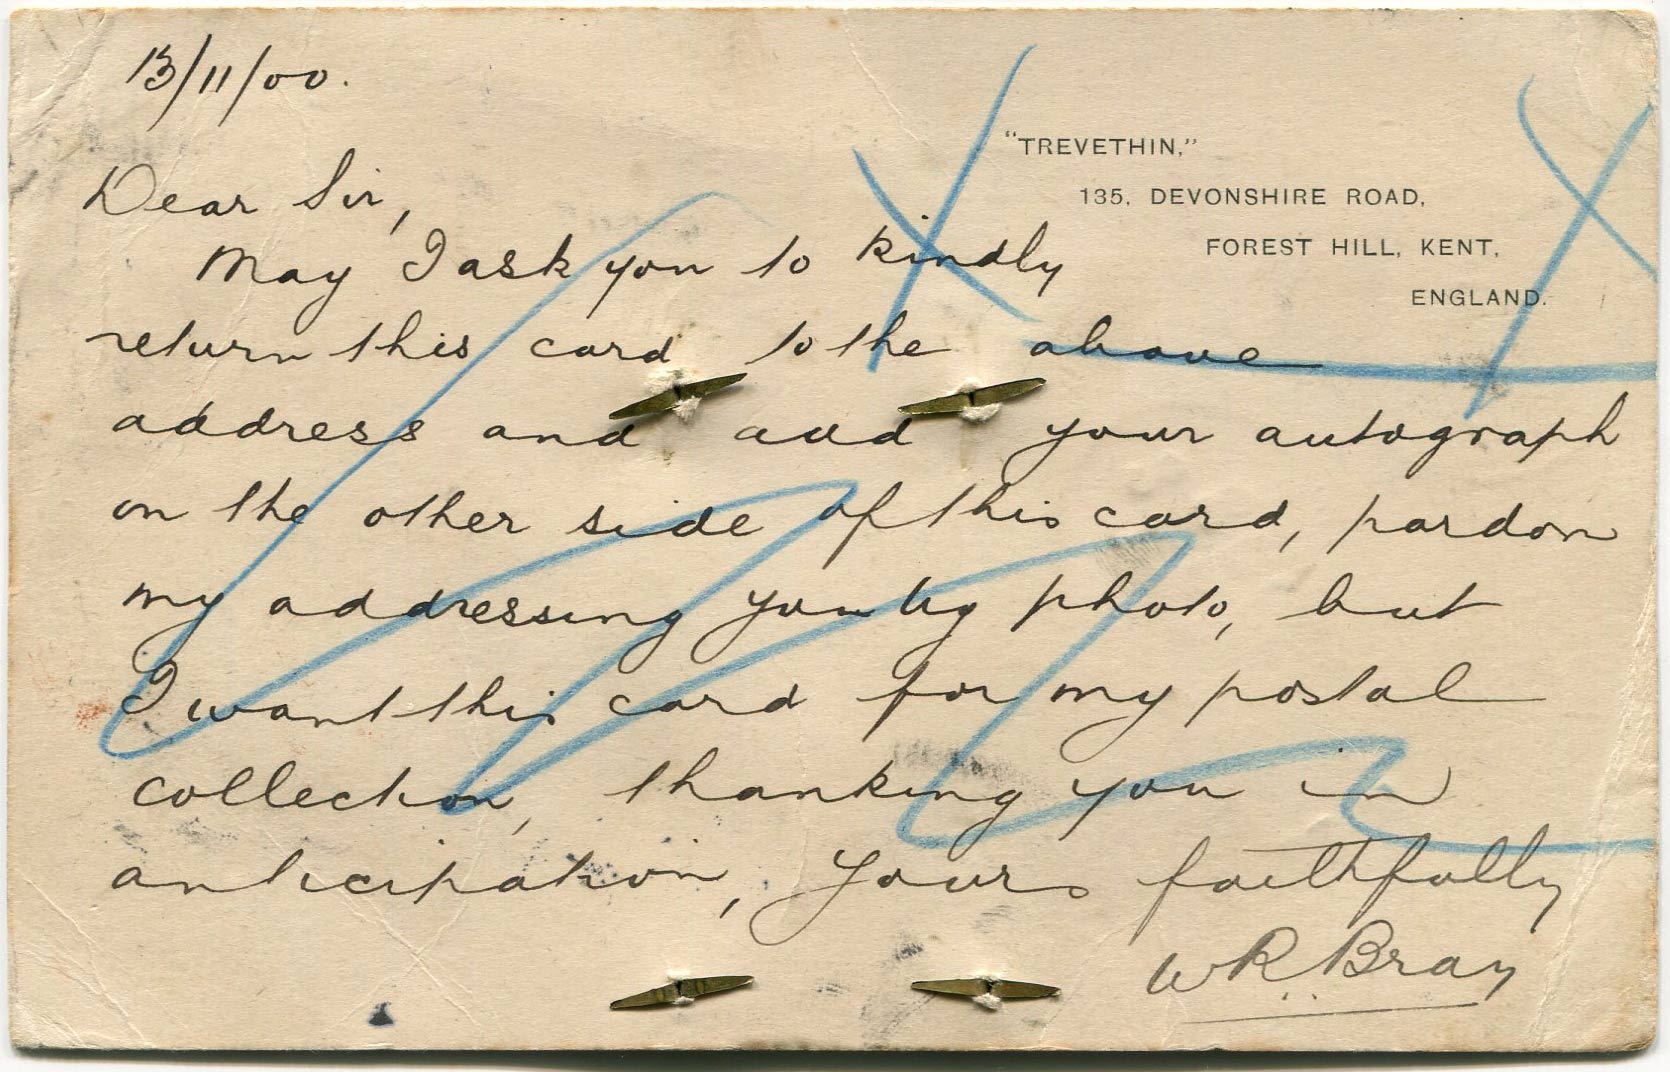 13/11/00.
"TREVETHIN,"
135, DEVONSHIRE ROAD,
FOREST HILL, KENT,
ENGLAND.
Dear Sir,
May I ask you to kindly
return this card to the above
address and add your autograph
on the other side of this card, pardon
my addressing you by photo, but
I want this card for my postal
collection, thanking you in
anticipation, Yours faithfully
W R Bray